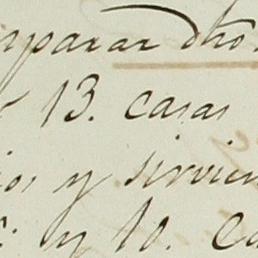 mparar dho
13. casas
ios y sirvien
y 10. Ca